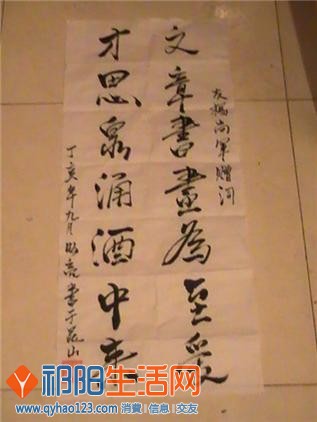 友楊軍贈詞
文章書畫為至愛
才思泉涌酒中来
丁亥年九月亮書于昆山
祁阳生活网
www.qyhao123.com 消費 | 信息 | 交友